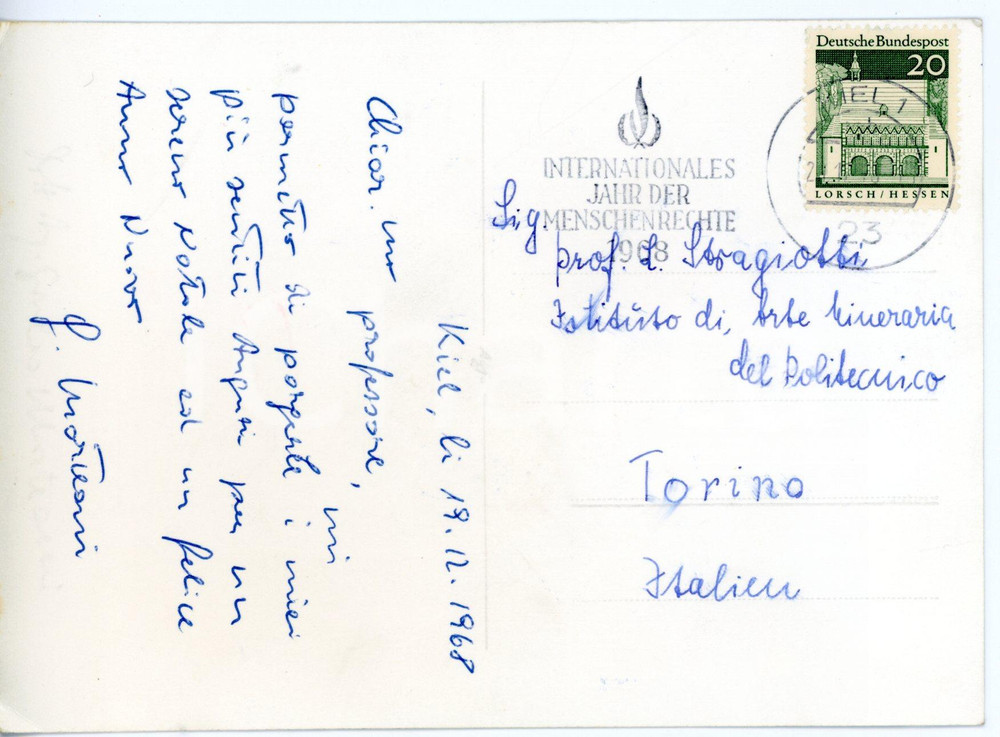 Kiel, li 19.12.1968
Chiar. mo professore,
mi
permetto di porgerle i miei
più sentiti Auguri per un
sereno Natale ed un felice
Anno Nuovo
INTERNATIONALES
JAHR DER
MENSCHENRECHTE
1968
Deutsche Bundespost
20
LORSCH / HESSEN
KIEL 1
23
Sig.
prof. L. Stragiotti
Istituto di, Arte Mineraria
del Politecnico
Torino
Italien